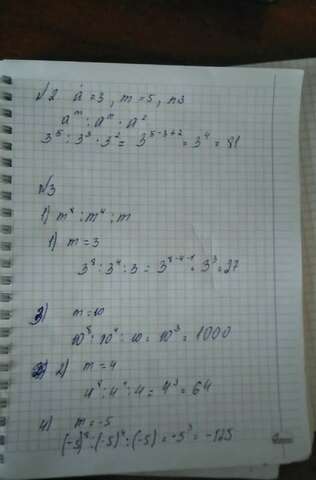 №2 a=3, m=5, n3
a^m : a^n · a^2
3^5 : 3^3 · 3^2 = 3^{5-3+2} = 3^4 = 81
№3
1) m^8 : m^4 : m
1) m=3
3^8 : 3^4 : 3 = 3^{8-4-1} = 3^3 = 27
3) m=10
10^8 : 10^4 : 10 = 10^3 = 1000
2) m=4
4^8 : 4^4 : 4 = 4^3 = 64
4) m=-5
(-5)^8 : (-5)^4 : (-5) = -5^3 = -125